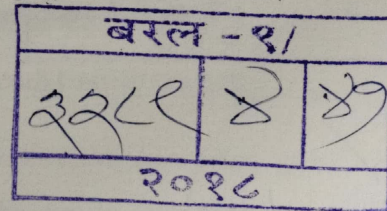 बरल -१/
३२८९ ४ ४७
२०१८